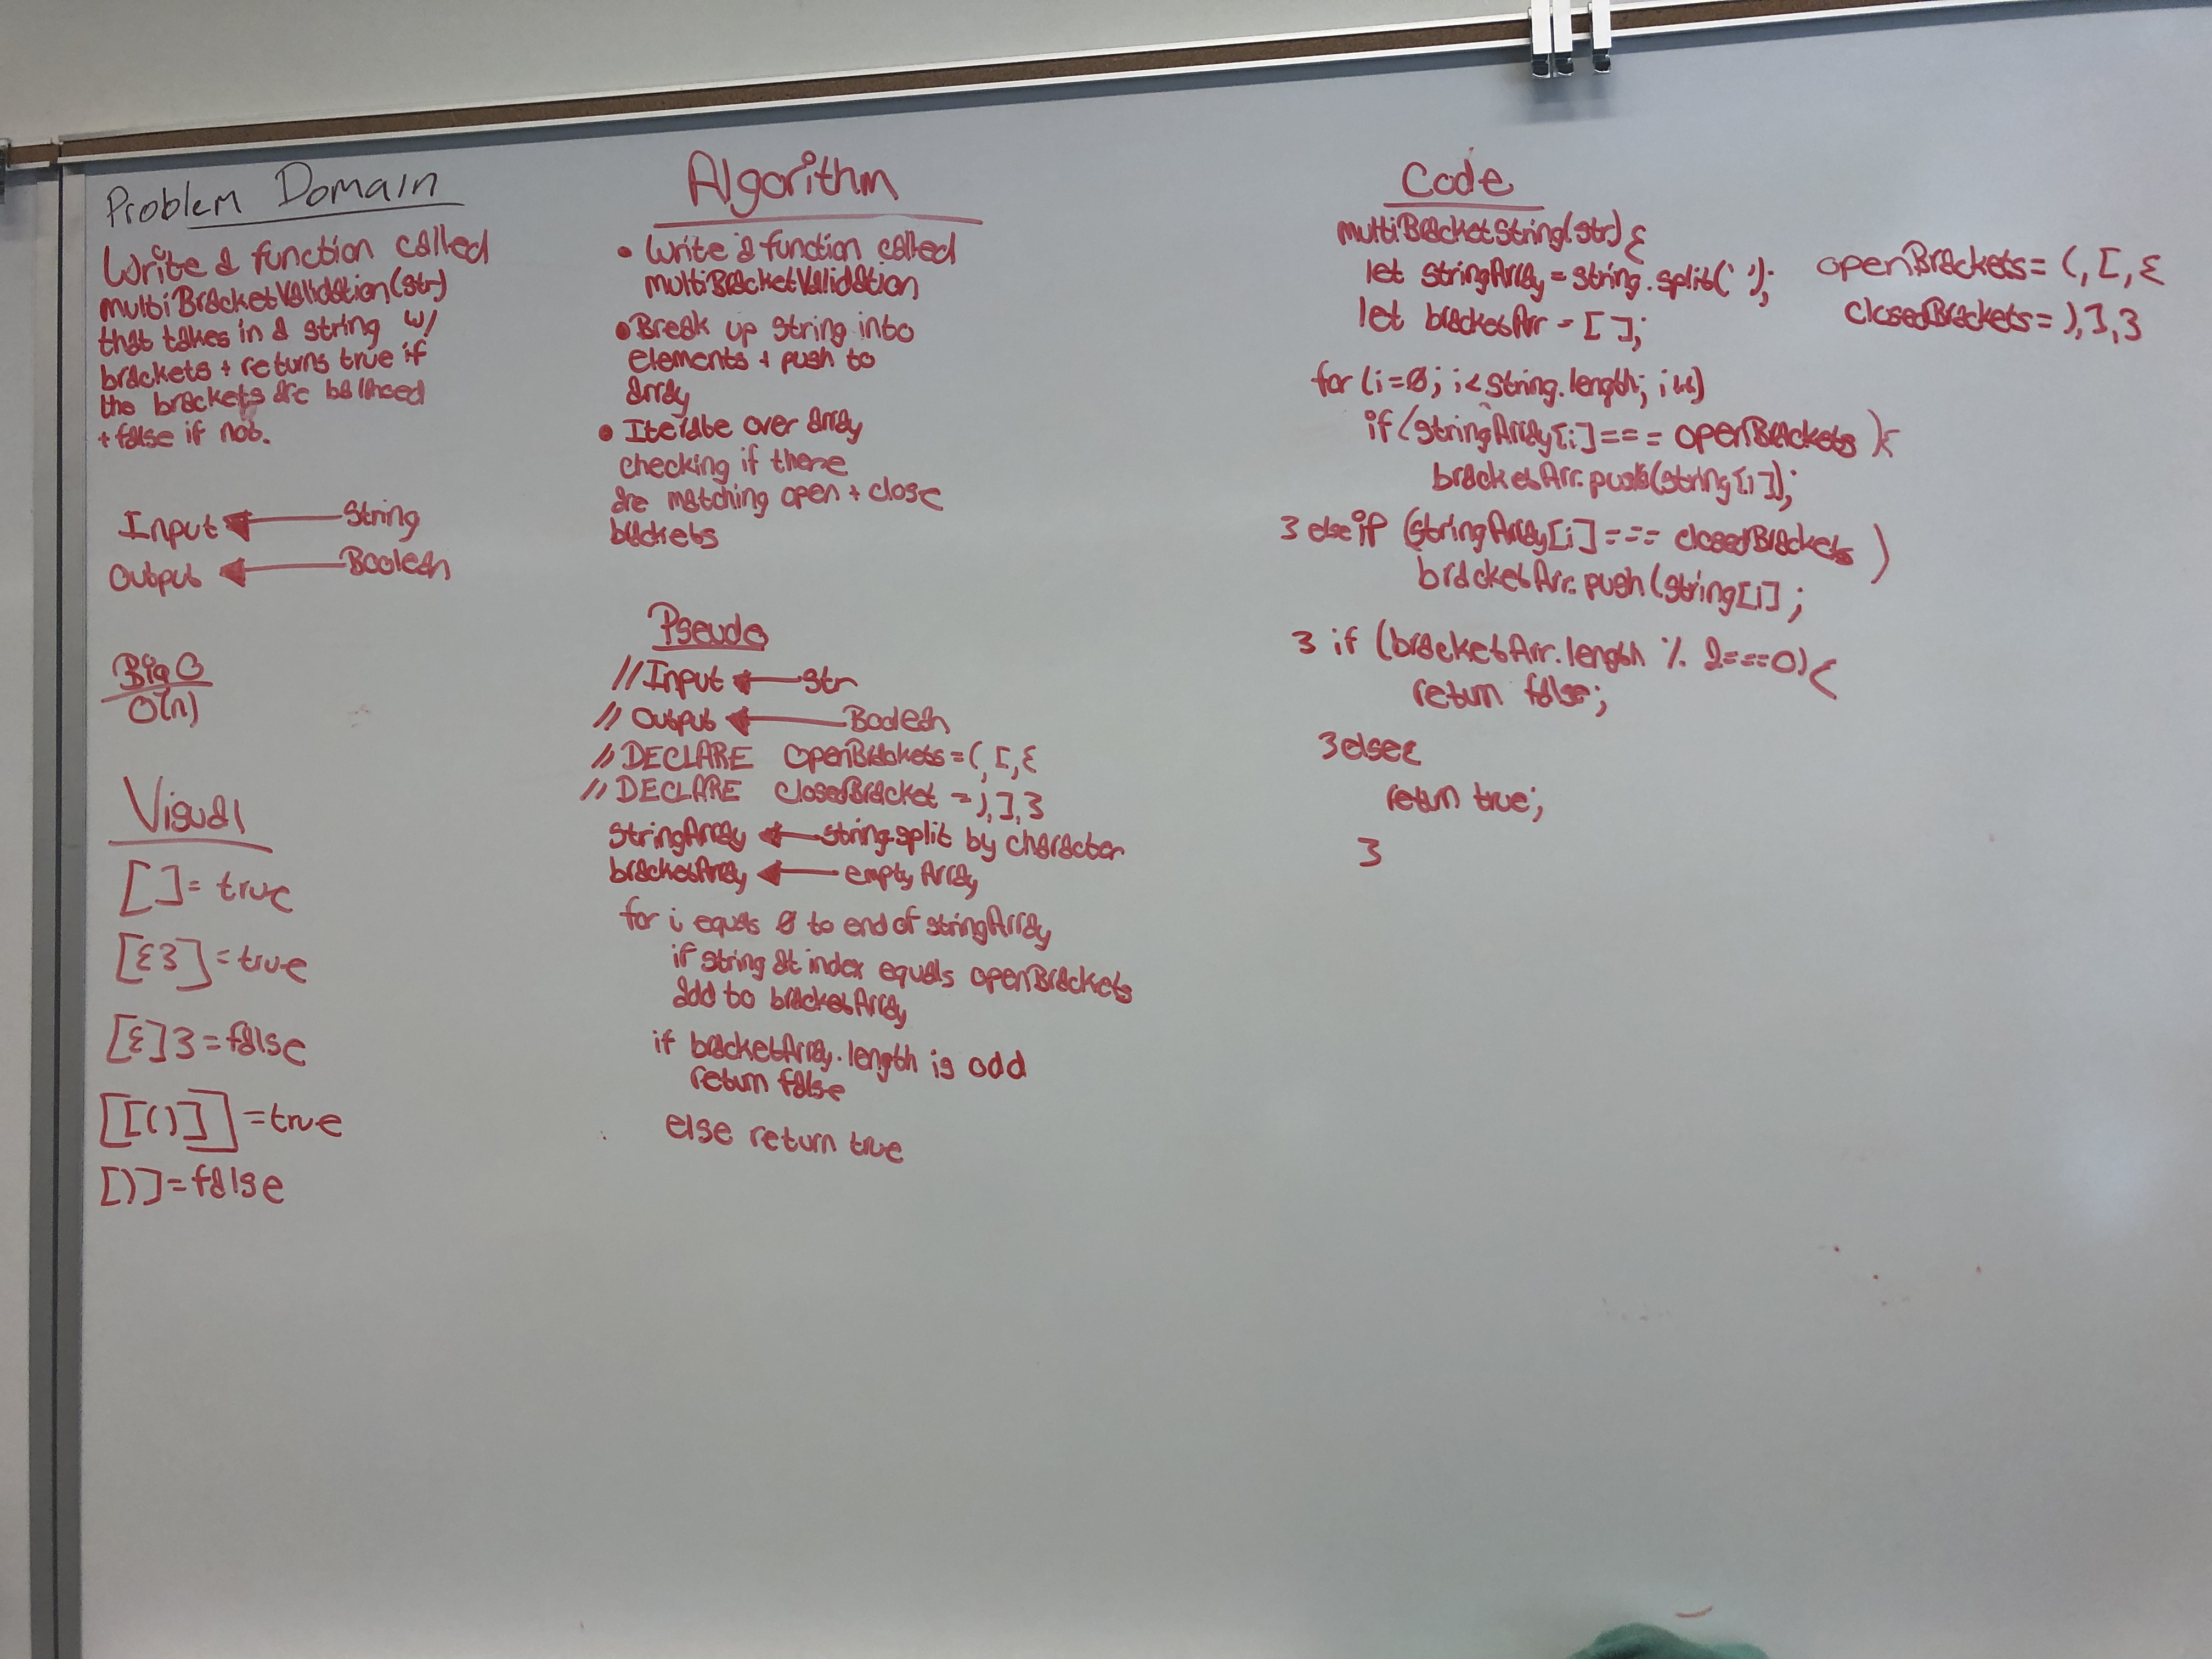 Problem Domain
Write a function called
multiBracketValidation(str)
that takes in a string w/
brackets + returns true if
the brackets are balanced
+ false if not.
Input ← String
Output ← Boolean
Big O
O(n)
Visual
[ ] = true
[{}] = true
[{]} = false
[[()]] = true
[)] = false
Algorithm
• Write a function called
multiBracketValidation
• Break up string into
elements + push to
array
• Iterate over array
checking if there
are matching open + close
brackets
Pseudo
// Input ← str
// Output ← Boolean
// DECLARE openBrackets = (, [, {
// DECLARE closedBracket = ), ], }
stringArray ← string.split by character
bracketArray ← empty Array
for i equals 0 to end of stringArray
if string at index equals openBrackets
add to bracketArray
if bracketArray.length is odd
return false
else return true
Code
multiBracketString(str) {
let stringArray = string.split(' ');
let bracketArr = [ ];
for (i=0; i< string.length; i++)
if (stringArray[i] === openBrackets ) {
bracketArr.push(string[i]);
} else if (stringArray[i] === closedBrackets )
bracketArr.push(string[i] ;
} if (bracketArr.length % 2===0) {
return false;
} else {
return true;
}
openBrackets = (, [, {
closedBrackets = ), ], }